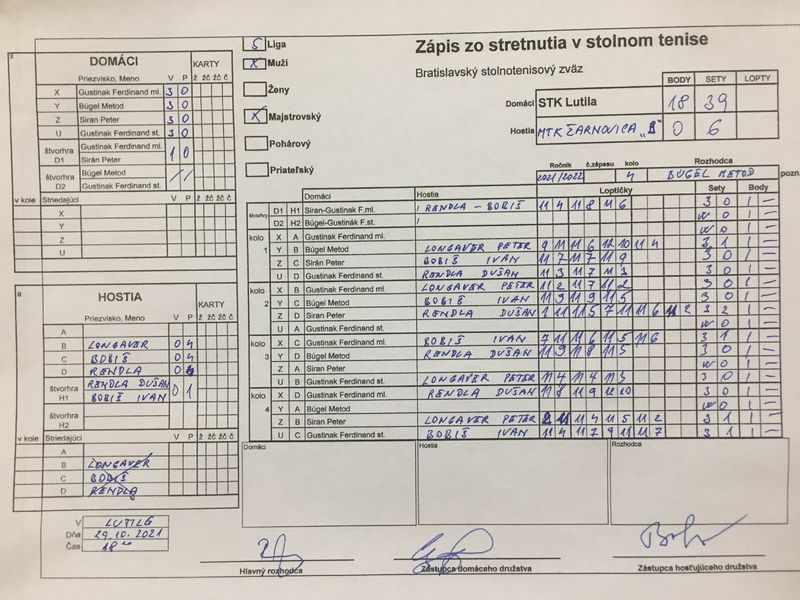 Zápis zo stretnutia v stolnom tenise
Bratislavský stolnotenisový zväz
5 Liga
X Muži
Ženy
X Majstrovský
Pohárový
Priateľský
BODY SETY LOPTY
Domáci STK Lutila 18 39
Hostia MTK ŽARNOVICA "B" 0 6
Ročník č.zápasu kolo Rozhodca
2021/2022 4 BÜGEL METOD pozn.
x
DOMÁCI KARTY
Priezvisko, Meno V P ž žč žč č
X Gustinak Ferdinand ml. 3 0
Y Bügel Metod 3 0
Z Siran Peter 3 0
U Gustinak Ferdinand st. 3 0
štvorhra D1 Gustinak Ferdinand ml. 1 0
Sirán Peter
štvorhra D2 Bügel Metod / /
Gustinak Ferdinand st.
v kole Striedajúci
X
Y
Z
U
a
HOSTIA KARTY
Priezvisko, Meno V P ž žč žč č
A
B LONGAVER 0 4
C BOBIŠ 0 4
D RENDLA 0 4
štvorhra H1 RENDLA DUŠAN 0 1
BOBIŠ IVAN
štvorhra H2
v kole Striedajúci
A
B LONGAVER
C BOBIŠ
D RENDLA
V LUTILA
Dňa 29.10.2021
Čas 18 00
Domáci Hostia Loptičky Sety Body
štvorhry D1 H1 Siran-Gustinak F.ml. / RENDLA - BOBIŠ 11 4 11 8 11 6 3 0 1 –
D2 H2 Bügel-Gustinák F.st. / W 0 1 –
kolo 1 X A Gustinak Ferdinand ml. W 0 1 –
Y B Bügel Metod LONGAVER PETER 9 11 11 6 12 10 11 4 3 1 1 –
Z C Siran Peter BOBIŠ IVAN 11 7 11 7 11 9 3 0 1 –
U D Gustinak Ferdinand st. RENDLA DUŠAN 11 3 11 7 11 3 3 0 1 –
kolo 2 X B Gustinak Ferdinand ml. LONGAVER PETER 11 2 11 7 11 2 3 0 1 –
Y C Bügel Metod BOBIŠ IVAN 11 9 11 9 11 5 3 0 1 –
Z D Siran Peter RENDLA DUŠAN 11 11 5 7 11 11 6 11 2 3 2 1 –
U A Gustinak Ferdinand st. W 0 1 –
kolo 3 X C Gustinak Ferdinand ml. BOBIŠ IVAN 7 11 11 6 11 5 11 6 3 1 1 –
Y D Bügel Metod RENDLA DUŠAN 11 9 11 8 11 5 3 0 1 –
Z A Siran Peter W 0 1 –
U B Gustinak Ferdinand st. LONGAVER PETER 11 4 11 4 11 3 3 0 1 –
kolo 4 X D Gustinak Ferdinand ml. RENDLA DUŠAN 11 8 11 9 12 10 3 0 1 –
Y A Bügel Metod W 0 1 –
Z B Siran Peter LONGAVER PETER 11 4 11 5 11 2 3 1 1 –
U C Gustinak Ferdinand st. BOBIŠ IVAN 11 4 11 7 9 11 11 7 3 1 1 –
Domáci Hostia Rozhodca
Hlavný rozhodca Zástupca domáceho družstva Zástupca hosťujúceho družstva